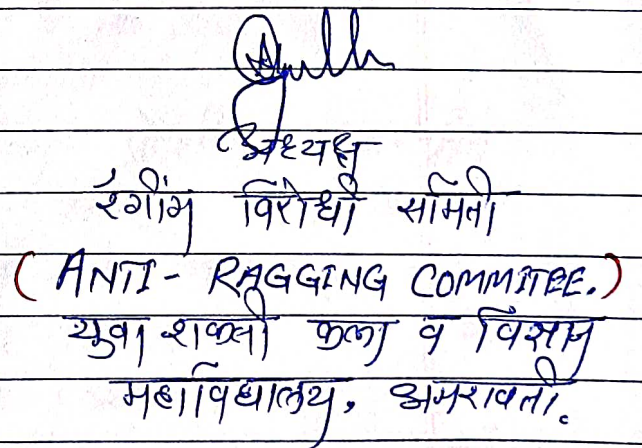 अध्यक्ष
रॅगींग विरोधी समिती
(ANTI - RAGGING COMMITEE.)
युवा शक्ती कला व विज्ञान
महाविद्यालय, अमरावती.